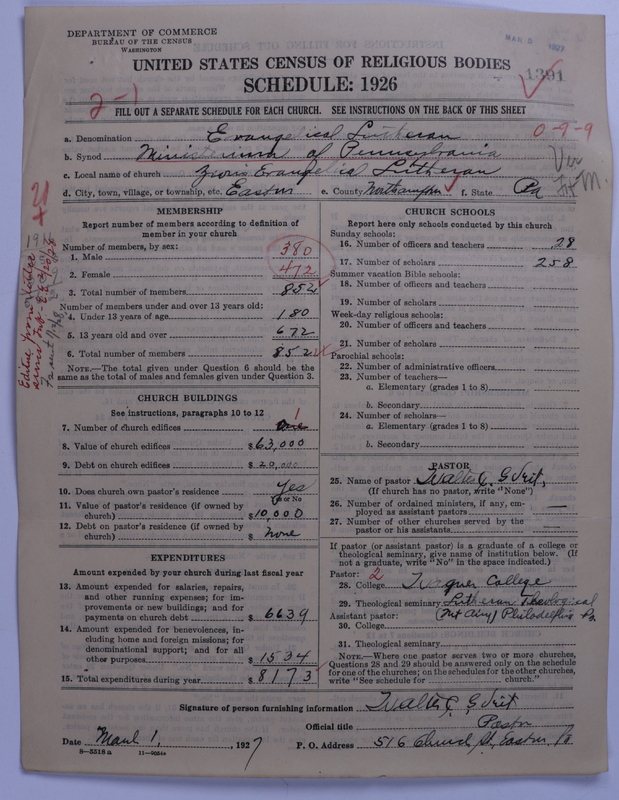 DEPARTMENT OF COMMERCE
BUREAU OF THE CENSUS
WASHINGTON
MAR 5 1927
UNITED STATES CENSUS OF RELIGIOUS BODIES
1391
SCHEDULE: 1926
2-1
FILL OUT A SEPARATE SCHEDULE FOR EACH CHURCH. SEE INSTRUCTIONS ON THE BACK OF THIS SHEET
a. Denomination Evangelical Lutheran 0-9-9
b. Synod Ministerium of Pennsylvania
c. Local name of church Zions Evangelis Lutheran
d. City, town, village, or township, etc. Easton e. County Northampton f. State Pa
MEMBERSHIP
Report number of members according to definition of member in your church
Number of members, by sex:
1. Male 380
2. Female 472
3. Total number of members 852
Number of members under and over 13 years old:
4. Under 13 years of age 180
5. 13 years old and over 672
6. Total number of members 852
NOTE.—The total given under Question 6 should be the
same as the total of males and females given under Question 3.
CHURCH BUILDINGS
See instructions, paragraphs 10 to 12
7. Number of church edifices One 1
8. Value of church edifices $63,000
9. Debt on church edifices $20,000
10. Does church own pastor's residence Yes
Yes or No
11. Value of pastor's residence (if owned by
church) $10,000
12. Debt on pastor's residence (if owned by
church) $ None
EXPENDITURES
Amount expended by your church during last fiscal year
13. Amount expended for salaries, repairs,
and other running expenses; for im-
provements or new buildings; and for
payments on church debt $ 6639
14. Amount expended for benevolences, in-
cluding home and foreign missions; for
denominational support; and for all
other purposes $ 1534
15. Total expenditures during year $ 8173
CHURCH SCHOOLS
Report here only schools conducted by this church
Sunday schools:
16. Number of officers and teachers 28
17. Number of scholars 258
Summer vacation Bible schools:
18. Number of officers and teachers
19. Number of scholars
Week-day religious schools:
20. Number of officers and teachers
21. Number of scholars
Parochial schools:
22. Number of administrative officers
23. Number of teachers—
a. Elementary (grades 1 to 8)
b. Secondary
24. Number of scholars—
a. Elementary (grades 1 to 8)
b. Secondary
PASTOR
25. Name of pastor Walter C. G. Veit,
(If church has no pastor, write "None")
26. Number of ordained ministers, if any, em-
ployed as assistant pastors —
27. Number of other churches served by the
pastor or his assistants —
If pastor (or assistant pastor) is a graduate of a college or
theological seminary, give name of institution below. (If
not a graduate, write "No" in the space indicated.)
Pastor: 2
28. College Wagner College
29. Theological seminary Lutheran Theological
Assistant pastor: (Mt Airy) Philadelphia Pa.
30. College
31. Theological seminary
NOTE.—Where one pastor serves two or more churches,
Questions 28 and 29 should be answered only on the schedule
for one of the churches; on the schedules for the other churches,
write "See schedule for church."
Signature of person furnishing information Walter C. G. Veit
Official title Pastor
Date March 1, 1927 P. O. Address 516 Church St, Easton Pa
8-5518 a 11-9054a